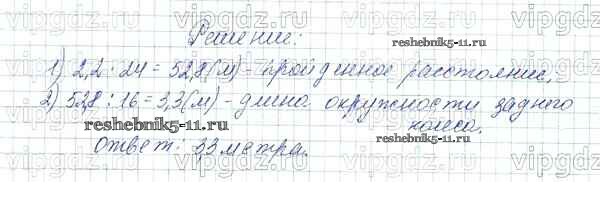 vipgdz.ru vipgdz.ru vipgdz.ru vipgdz.ru
Решение:
reshebnik5-11.ru
1) 2,2 : 24 = 52,8 (м) - пройденное расстояние;
2) 52,8 : 16 = 3,3 (м) - длина окружности заднего
колеса.
reshebnik5-11.ru
reshebnik5-11.ru
Ответ: 3,3 метра.
vipgdz.ru vipgdz.ru vipgdz.ru vipgdz.ru